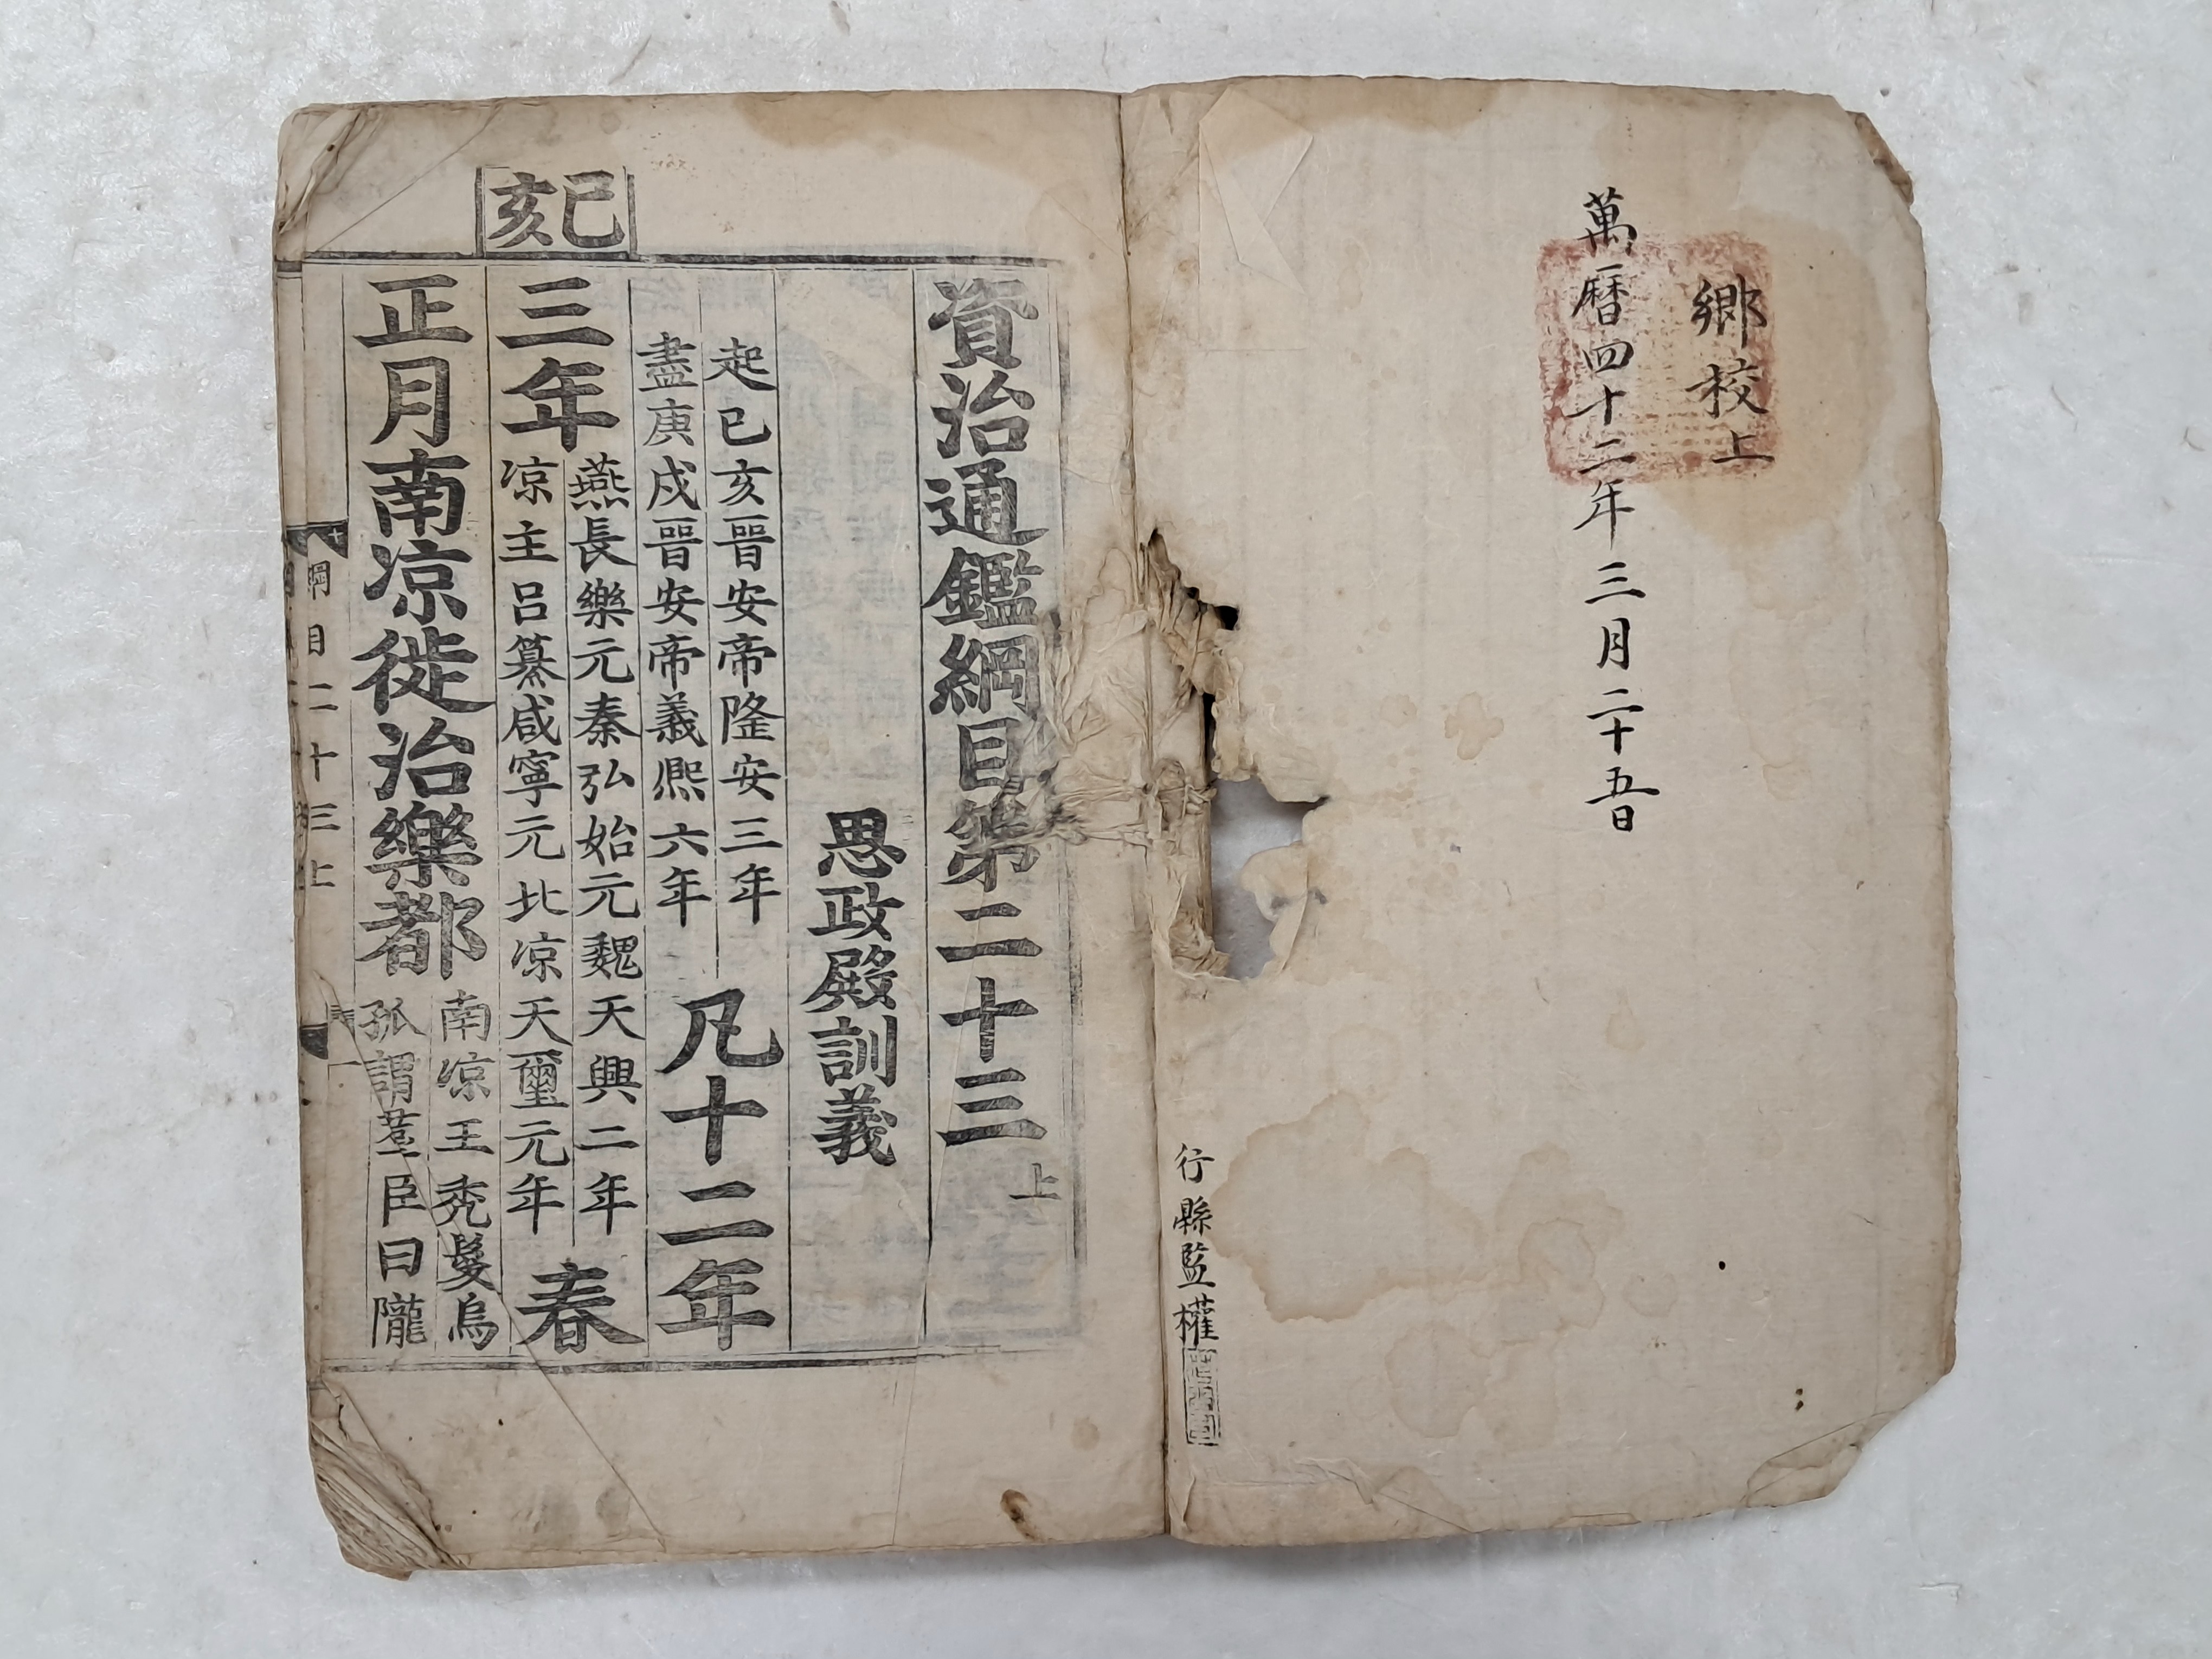 鄕校上
萬曆四十二年三月二十五日
行縣監權
資治通鑑綱目第二十三上
思政殿訓義
起己亥晉安帝隆安三年
盡庚戌晉安帝義熙六年
凡十二年
己亥
三年
燕長樂元秦弘始元魏天興二年
凉主呂纂咸寧元北凉天璽元年
春
正月南凉徙治樂都
南凉王禿髮烏
孤謂羣臣曰隴
綱目二十三上
一